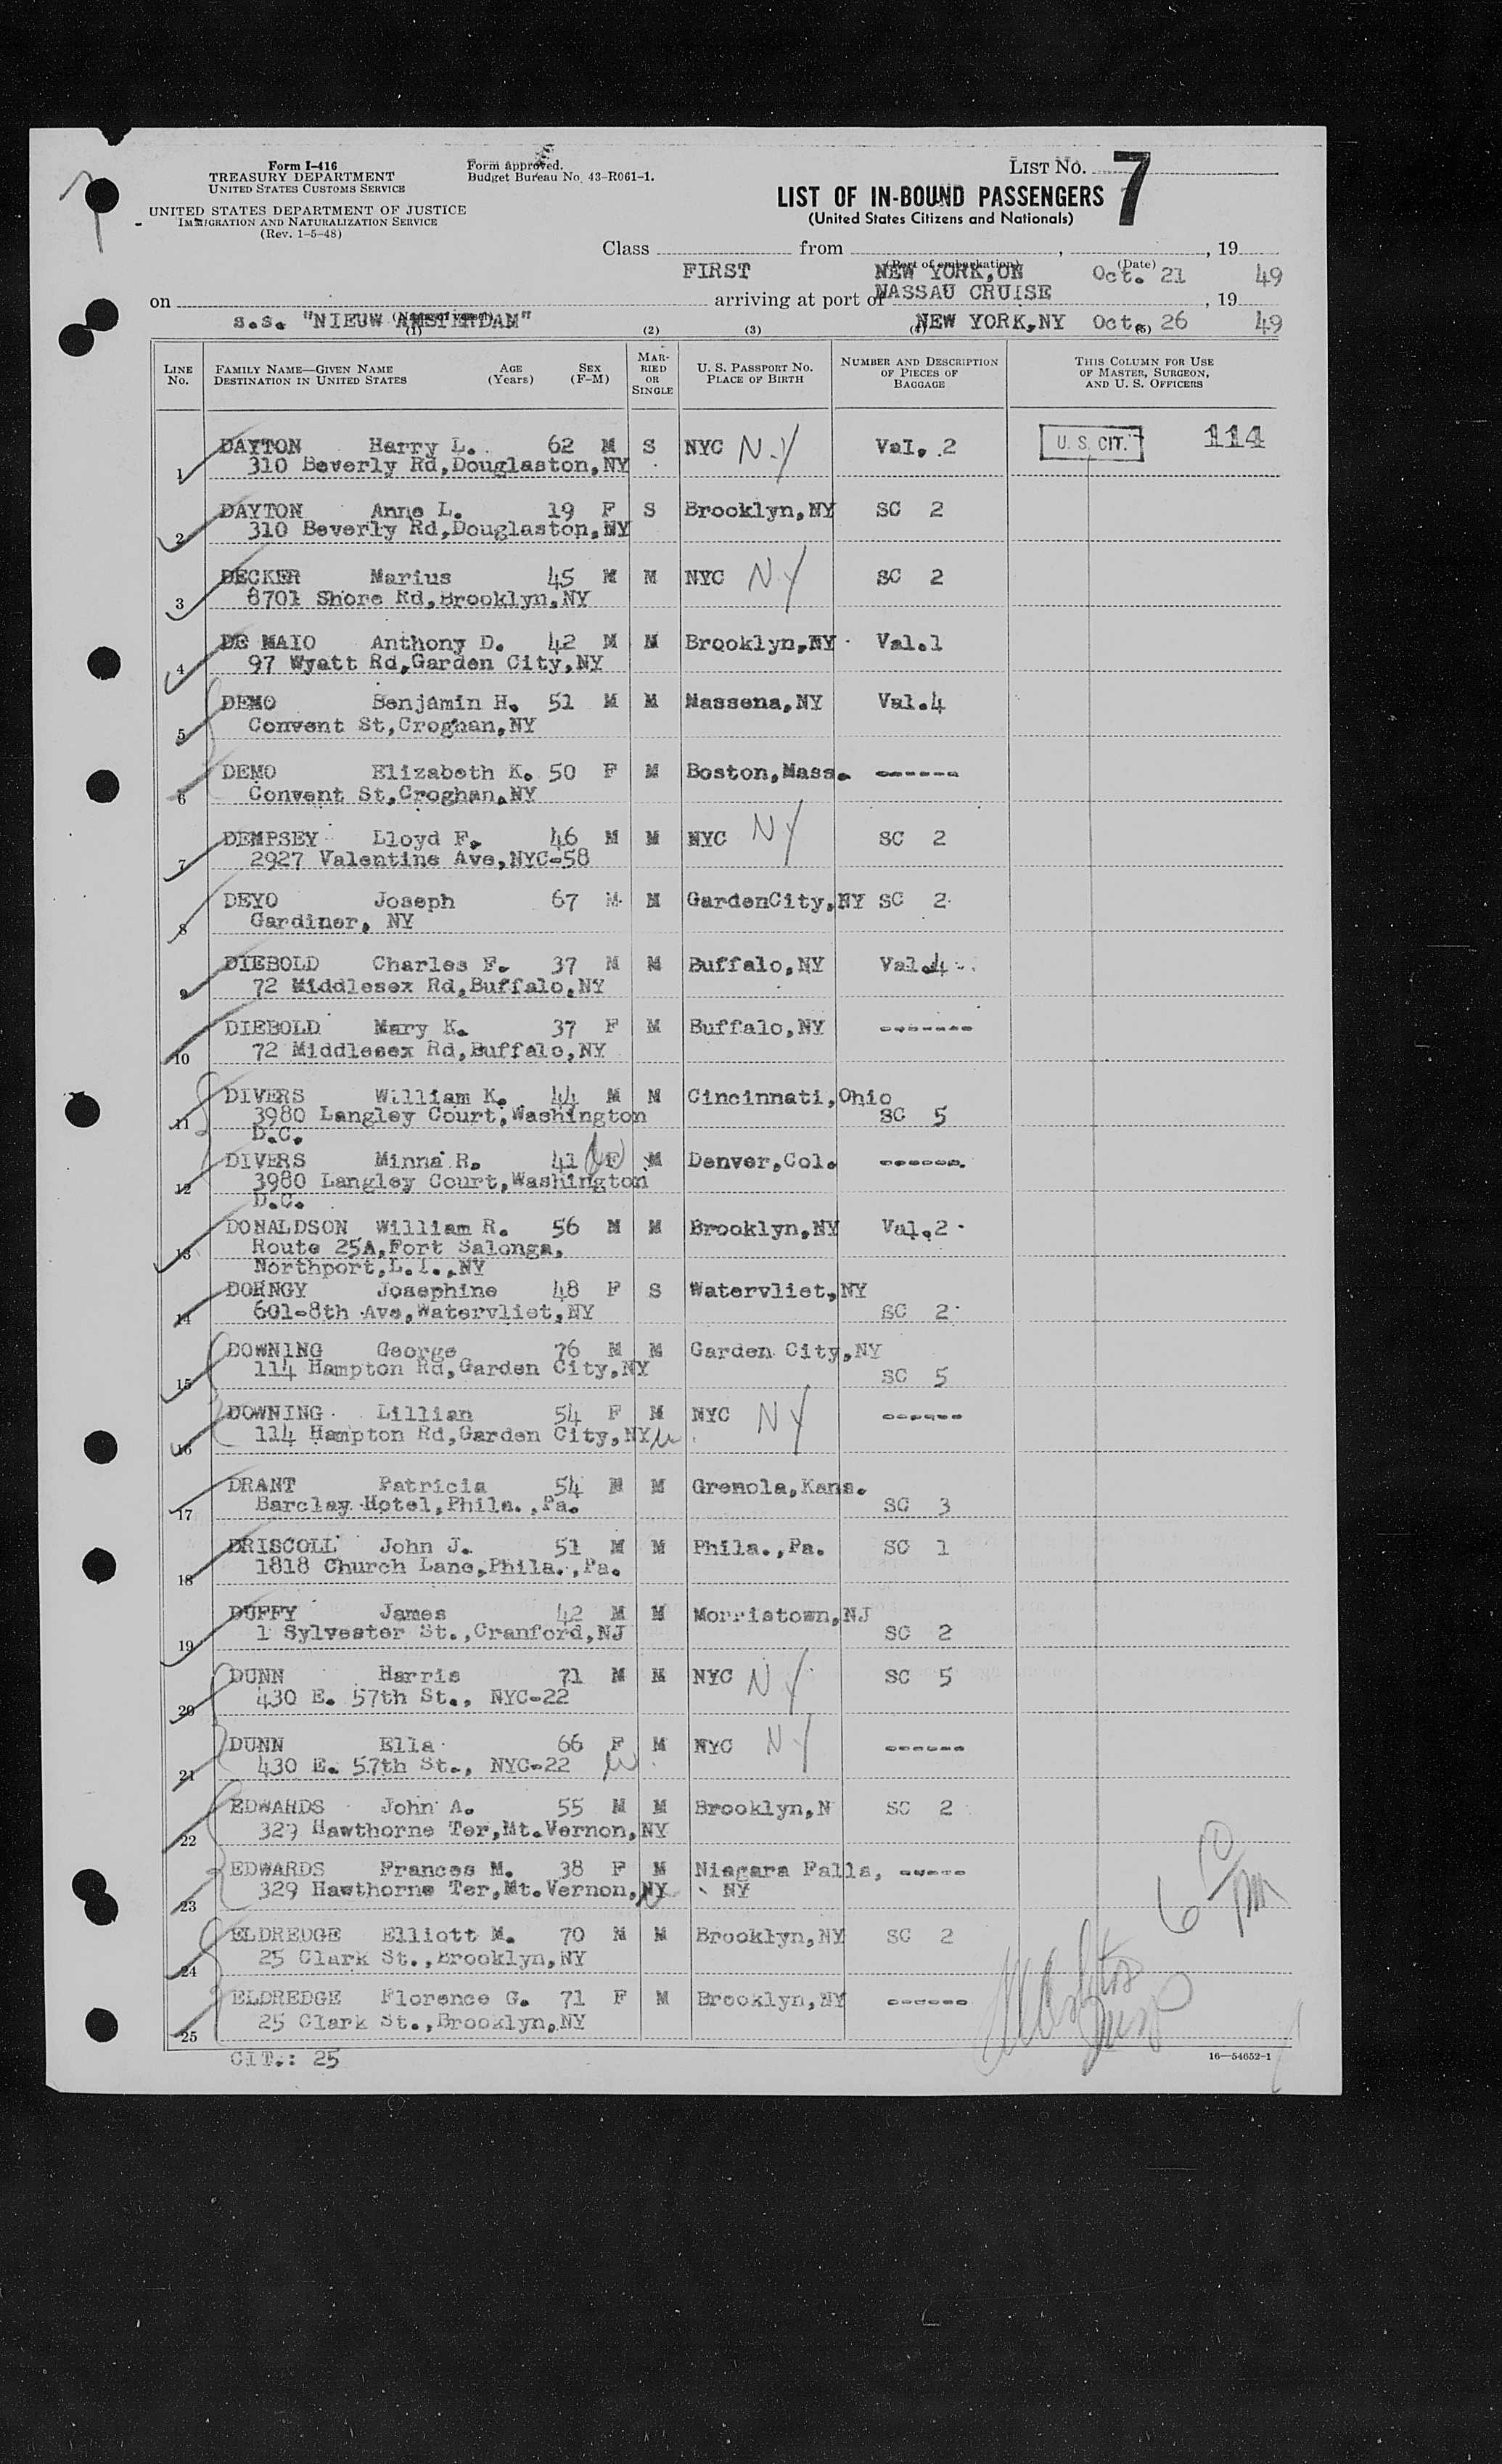 Form I-416
TREASURY DEPARTMENT
UNITED STATES CUSTOMS SERVICE
UNITED STATES DEPARTMENT OF JUSTICE
IMMIGRATION AND NATURALIZATION SERVICE
(Rev. 1-5-48)
Form approved.
Budget Bureau No. 43-R061-1.
LIST NO. 7
LIST OF IN-BOUND PASSENGERS
(United States Citizens and Nationals)
Class from , , 19
FIRST (Port of embarkation) NEW YORK, ON (Date) Oct. 21 49
NASSAU CRUISE
on arriving at port of , 19
s.s. "NIEUW AMSTERDAM" (Name of vessel) NEW YORK,NY Oct. 26 49
(1) (2) (3) (4) (5)
LINE No. FAMILY NAME—GIVEN NAME DESTINATION IN UNITED STATES AGE (Years) SEX (F-M) MARRIED OR SINGLE U. S. PASSPORT NO. PLACE OF BIRTH NUMBER AND DESCRIPTION OF PIECES OF BAGGAGE THIS COLUMN FOR USE OF MASTER, SURGEON, AND U. S. OFFICERS
1 DAYTON Harry L. 62 M S NYC NY Val. 2 U. S. CIT. 114
310 Beverly Rd,Douglaston,NY
2 DAYTON Anne L. 19 F S Brooklyn,NY SC 2
310 Beverly Rd,Douglaston,NY
3 DECKER Marius 45 M M NYC NY SC 2
8701 Shore Rd,Brooklyn,NY
4 DE MAIO Anthony D. 42 M M Brooklyn,NY Val.1
97 Wyatt Rd,Garden City,NY
5 DEMO Benjamin H. 51 M M Massena,NY Val.4
Convent St,Croghan,NY
6 DEMO Elizabeth K. 50 F M Boston,Mass. ------
Convent St,Croghan,NY
7 DEMPSEY Lloyd F. 46 M M NYC NY SC 2
2927 Valentine Ave,NYC-58
8 DEYO Joseph 67 M M GardenCity,NY SC 2
Gardiner, NY
9 DIEBOLD Charles F. 37 M M Buffalo,NY Val.4
72 Middlesex Rd,Buffalo,NY
10 DIEBOLD Mary K. 37 F M Buffalo,NY -------
72 Middlesex Rd,Buffalo,NY
11 DIVERS William K. 44 M M Cincinnati,Ohio
3980 Langley Court,Washington SC 5
D.C.
12 DIVERS Minna R. 41 F M Denver,Col. ------
3980 Langley Court,Washington
D.C.
13 DONALDSON William R. 56 M M Brooklyn,NY Val.2
Route 25A,Fort Salonga,
Northport,L.I.,NY
14 DORNGY Josephine 48 F S Watervliet,NY
601-8th Ave,Watervliet,NY SC 2
15 DOWNING George 76 M M Garden City,NY
114 Hampton Rd,Garden City,NY SC 5
16 DOWNING Lillian 54 F M NYC NY ------
114 Hampton Rd,Garden City,NY
17 DRANT Patricia 54 M M Grenola,Kans.
Barclay Hotel,Phila.,Pa. SC 3
18 DRISCOLL John J. 51 M M Phila.,Pa. SC 1
1818 Church Lane,Phila.,Pa.
19 DUFFY James 42 M M Morristown,NJ
1 Sylvester St.,Cranford,NJ SC 2
20 DUNN Harris 71 M M NYC NY SC 5
430 E. 57th St., NYC-22
21 DUNN Ella 66 F M NYC NY ------
430 E. 57th St., NYC-22
22 EDWARDS John A. 55 M M Brooklyn,N SC 2
329 Hawthorne Ter,Mt.Vernon,NY
23 EDWARDS Frances M. 38 F M Niagara Falls, -----
329 Hawthorne Ter,Mt.Vernon,NY NY
24 ELDREDGE Elliott M. 70 M M Brooklyn,NY SC 2
25 Clark St.,Brooklyn,NY
25 ELDREDGE Florence G. 71 F M Brooklyn,NY ------
25 Clark St.,Brooklyn,NY
CIT.: 25
16—54652-1